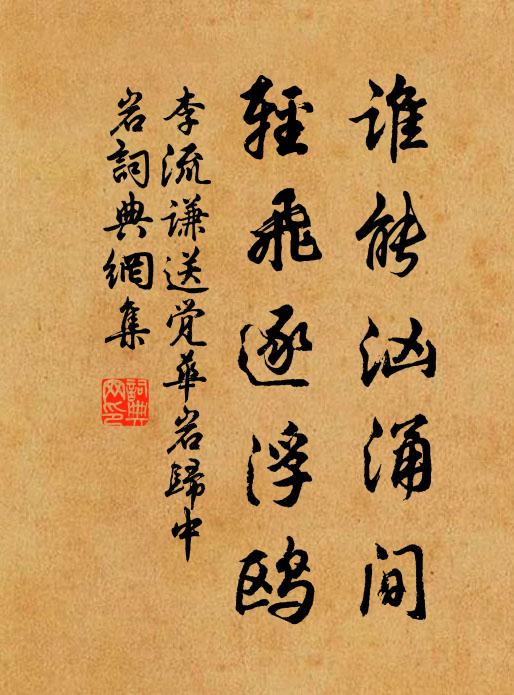 谁能汹涌间
轻飞逐浮鸥
李流谦送觉华岩归中
岩词典網集
詞典网印